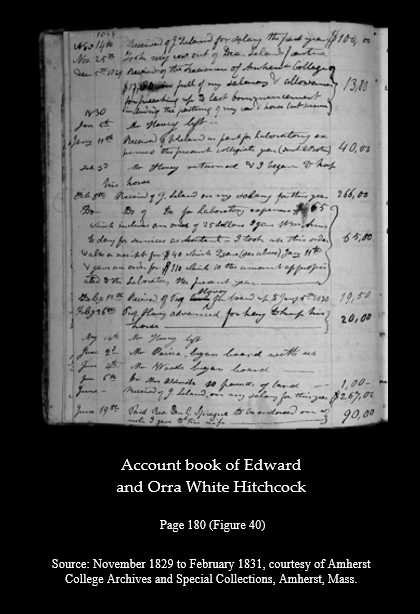 1829
Nov 14th Received of J. Leland for salary the past year $100,00
Nov. 25th Took my cow out of Dea. Leland's pasture
Dec 5th 1829 Received of the Treasurer of Amherst College
$13,80 in full of my salary & allowance 13,80
for fencing up to last commencement
including the pasturing of my cow & horse last summer
1830
Jan 6th Mr Hovey left
Jany 11th Received of Leland in part for Laboratory ex
penses the present collegiate year 40,00
Feb 3d Mr Hovey returned & I began to keep
his horse
Feb 8th Received of J. Leland on my salary for this year 266,00
Do Do of Do for Laboratory expenses $65
which includes an order of 25 dollars I gave Wm
to day for services as assistant - I took up this order
& also a receipt for $40 which I gave (see above) Jany 11th 65,00
& gave an order for $110 which is the amount appropri
ated to the Laboratory the present year
Feby 18th Received of Prof Hovey for board up to Jany 5th 1830 19,50
Feby 26th Prof Hovey advanced for hay to keep his
horse 20,00
May 14th Mr Hovey left
June 2d Mr Paine began board with us
June 4th Mr Woods began board
Jun 5th Dr Mrs 10 pounds of lard 1,00
June Received of J. Leland, on my salary for this year $267,00
June 19th Paid Rev Dr Sprague to be endorsed on a
note I gave to his wife 90,00
Account book of Edward
and Orra White Hitchcock
Page 180 (Figure 40)
Source: November 1829 to February 1831, courtesy of Amherst
College Archives and Special Collections, Amherst, Mass.